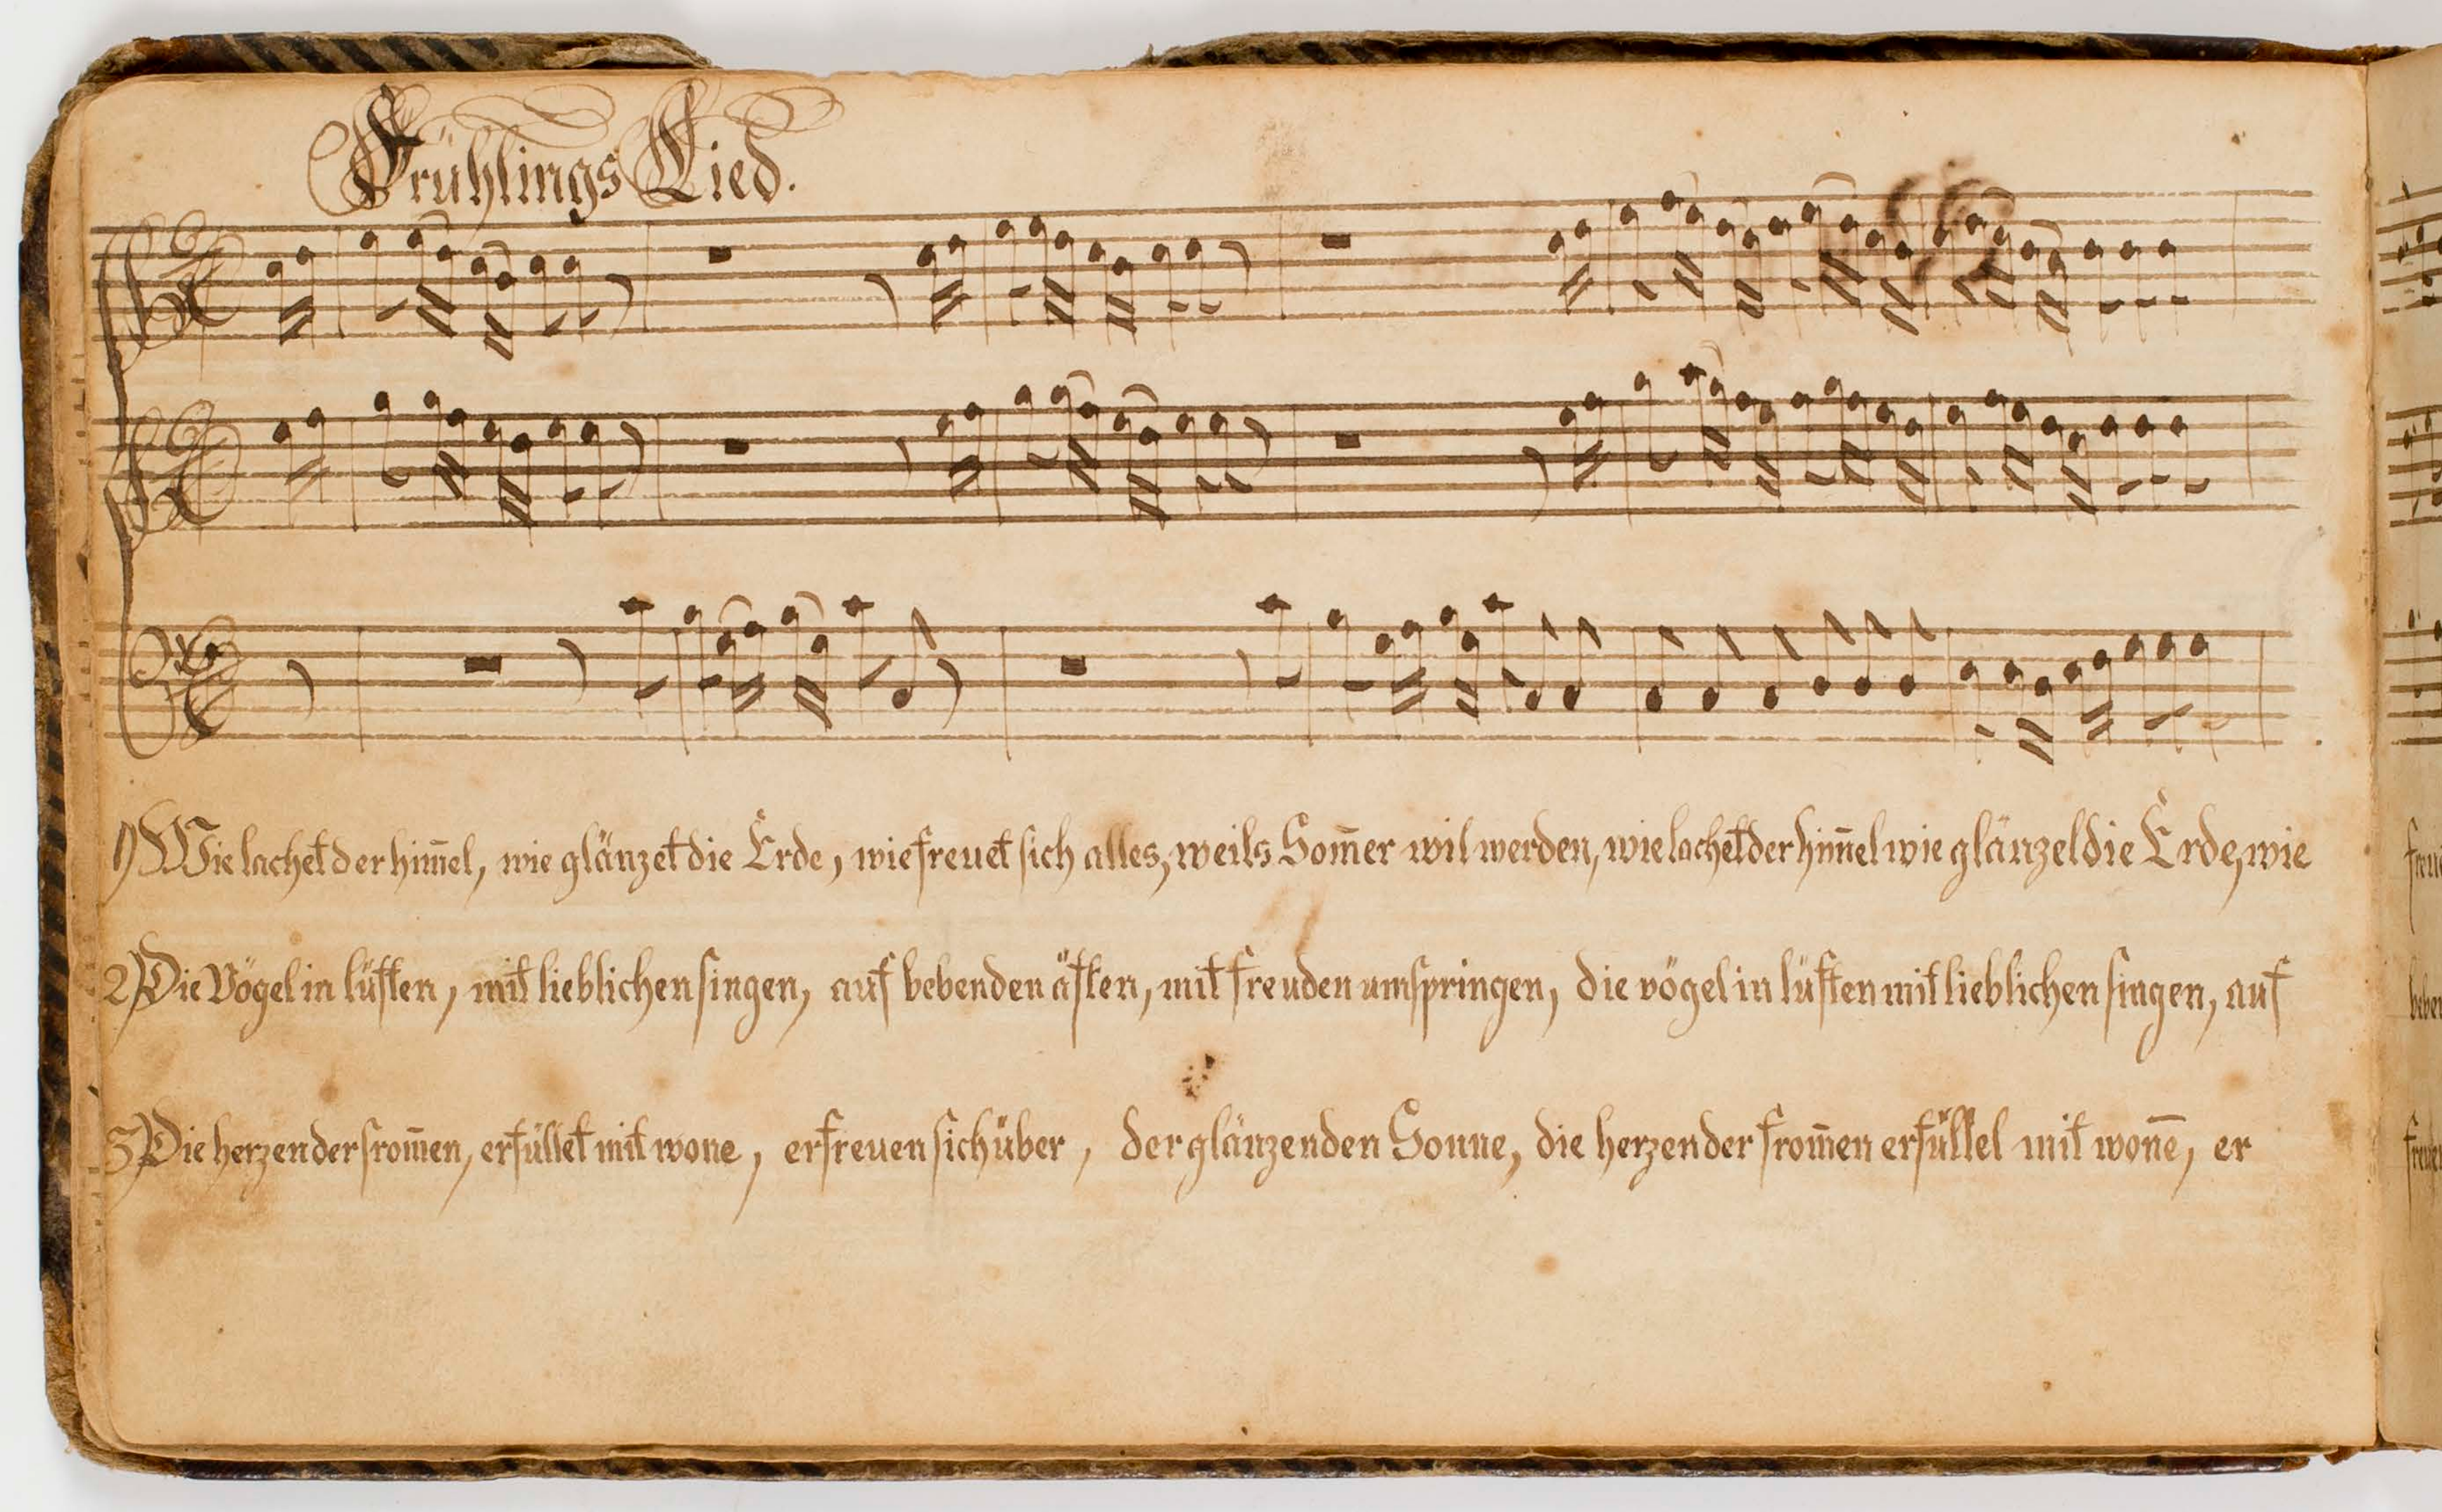 Frühlings Lied.
1) Wie lachet der him̄el, wie glänzet die Erde, wie freuet sich alles, weils Som̄er wil werden, wie lachet der him̄el wie glänzet die Erde, wie
2) Die Vögel in lüften, mit lieblichen singen, auf bebenden äften, mit freuden umspringen, die vögel in lüften mit lieblichen singen, auf
3) Die herzen der from̄en, erfüllet mit wone, erfreuen sich über, der glänzenden Sonne, die herzen der from̄en erfüllet mit won̄e, er